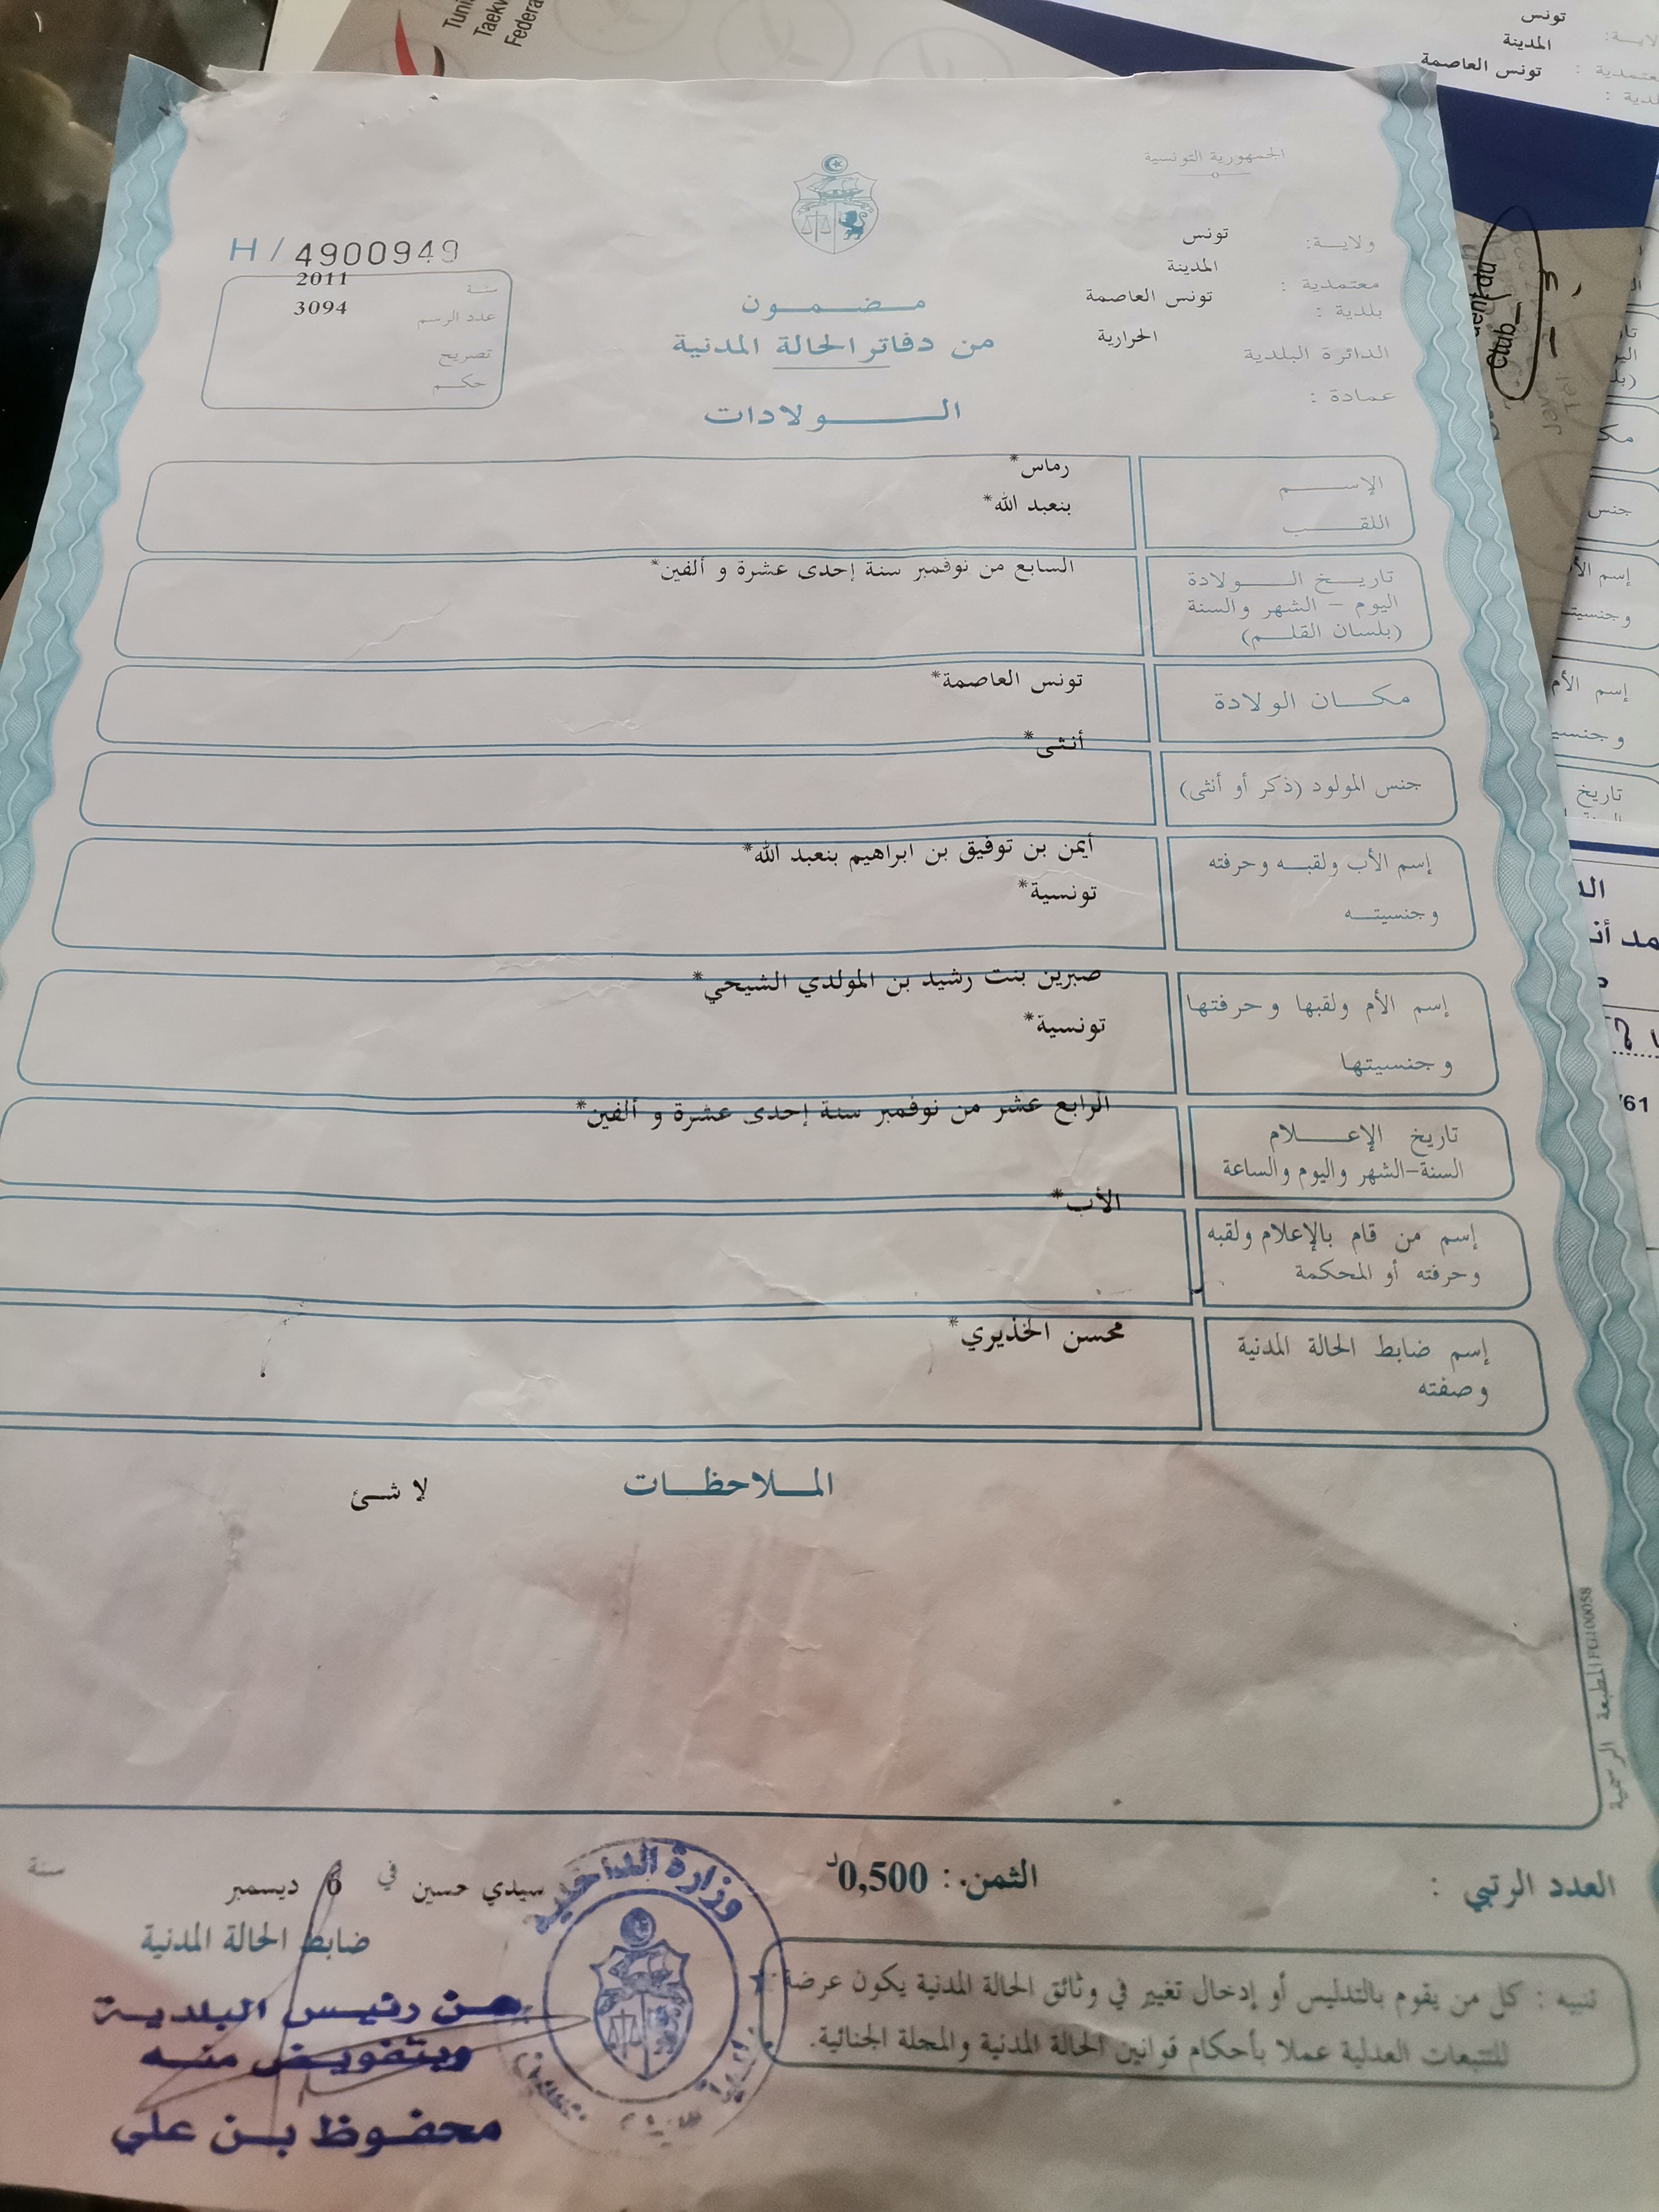 Tuni
Taekw
Federa
تونس
المدينة
تونس العاصمة
الجمهورية التونسية
ولايـة: تونس
معتمدية : المدينة
بلدية : تونس العاصمة
الدائرة البلدية الحرارية
عمادة :
H / 4900949
سنة 2011
عدد الرسم 3094
تصريح
حكم
مضمون
من دفاتر الحالة المدنية
الولادات
الإسم رماس*
اللقب بنعبد الله*
تاريخ الولادة السابع من نوفمبر سنة إحدى عشرة و ألفين*
اليوم - الشهر والسنة
(بلسان القلم)
مكان الولادة تونس العاصمة*
جنس المولود (ذكر أو أنثى) أنثى*
إسم الأب ولقبه وحرفته أيمن بن توفيق بن ابراهيم بنعبد الله*
وجنسيته تونسية*
إسم الأم ولقبها وحرفتها صبرين بنت رشيد بن المولدي الشيحي*
وجنسيتها تونسية*
تاريخ الإعلام الرابع عشر من نوفمبر سنة إحدى عشرة و ألفين*
السنة-الشهر واليوم والساعة
إسم من قام بالإعلام ولقبه الأب*
وحرفته أو المحكمة
إسم ضابط الحالة المدنية محسن الخذيري*
وصفته
الملاحظات لا شئ
المطبعة الرسمية
العدد الرتبي :
الثمن : 0,500د
سيدي حسين في 6 ديسمبر سنة
ضابط الحالة المدنية
عن رئيس البلدية
وبتفويض منه
محفوظ بن علي
وزارة الداخلية
تنبيه : كل من يقوم بالتدليس أو إدخال تغيير في وثائق الحالة المدنية يكون عرضة
للتتبعات العدلية عملا بأحكام قوانين الحالة المدنية والمجلة الجنائية.
Club